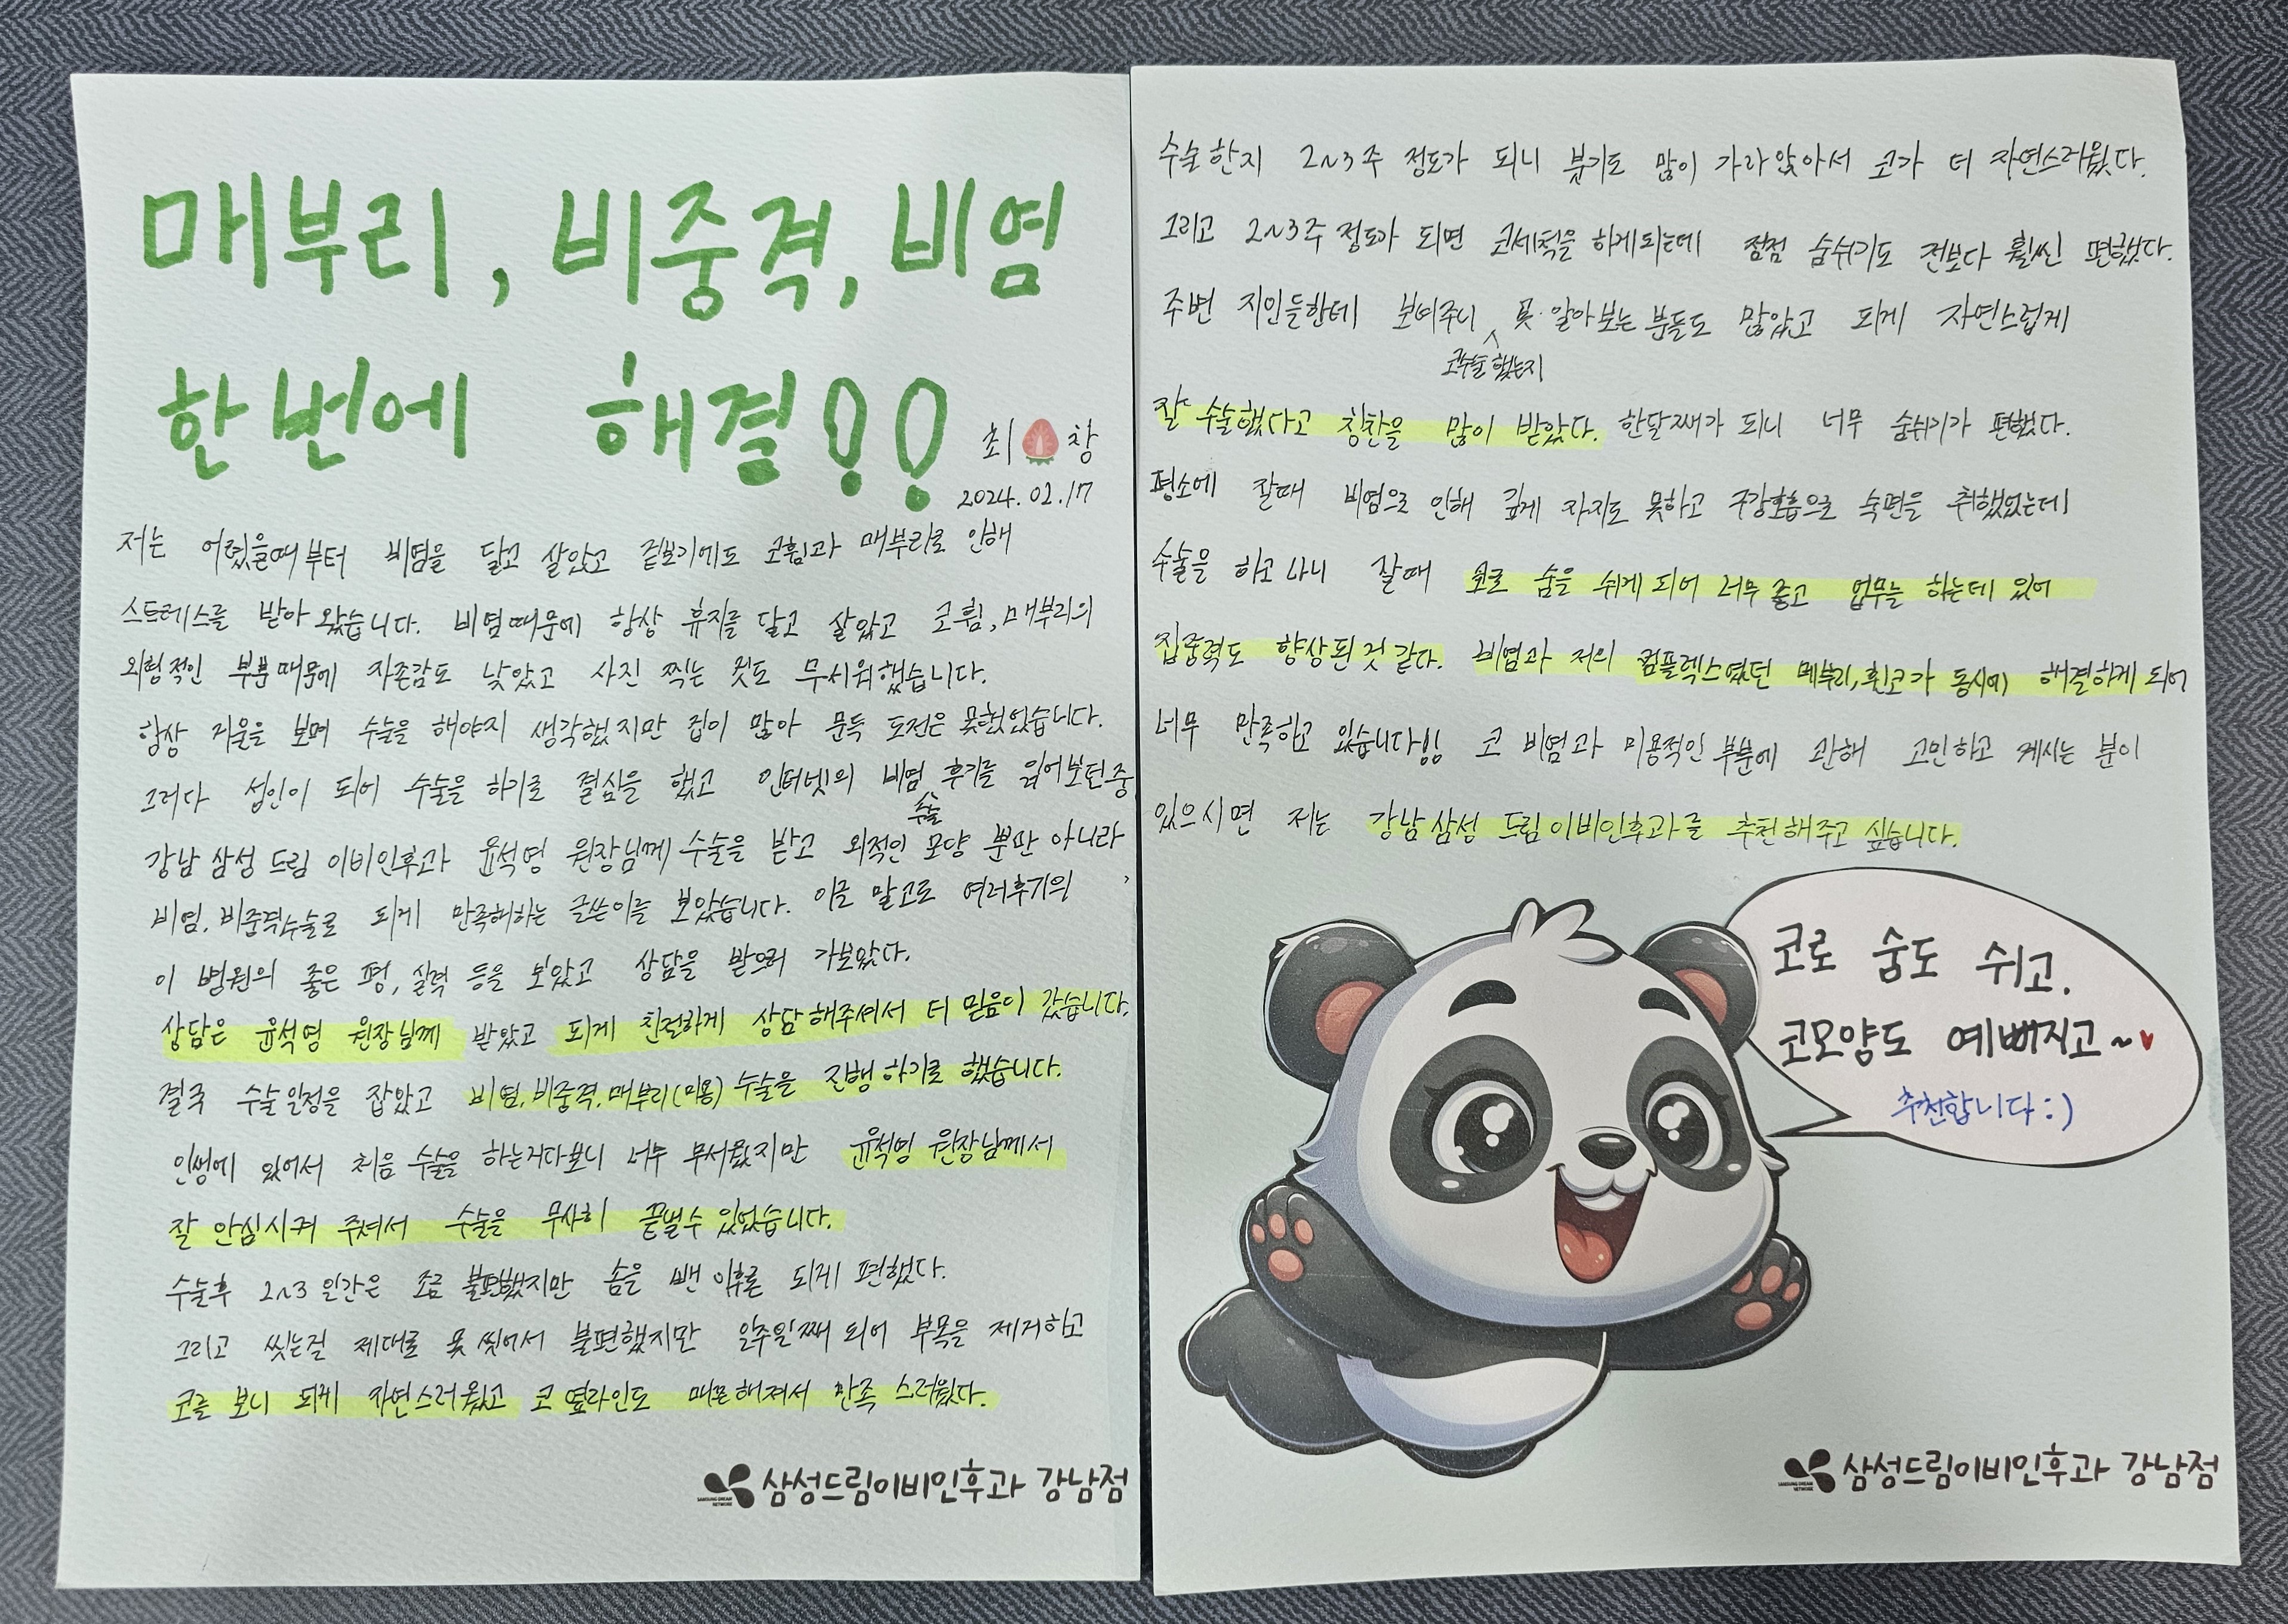 매부리, 비중격, 비염
한번에 해결!!
최 창
2024. 02. 17
저는 어렸을때부터 비염을 달고 살았고 겉보기에도 코휨과 매부리로 인해
스트레스를 받아 왔습니다. 비염때문에 항상 휴지를 달고 살았고 코휨, 매부리의
외형적인 부분때문에 자존감도 낮았고 사진 찍는 것도 무서워했습니다.
항상 거울을 보며 수술을 해야지 생각했지만 겁이 많아 문득 도전은 못했었습니다.
그러다 성인이 되어 수술을 하기로 결심을 했고 인터넷의 비염 수술 후기를 읽어보던중
강남 삼성 드림 이비인후과 윤석영 원장님께 수술을 받고 외적인 모양 뿐만 아니라
비염, 비중격수술로 되게 만족해하는 글쓴이를 보았습니다. 이글 말고도 여러후기의
이 병원의 좋은 평, 실력 등을 보았고 상담을 받으러 가보았다.
상담은 윤석영 원장님께 받았고 되게 친절하게 상담해주셔서 더 믿음이 갔습니다.
결국 수술일정을 잡았고 비염, 비중격, 매부리(미용) 수술을 진행하기로 했습니다.
인생에 있어서 처음 수술을 하는거다보니 너무 무서웠지만 윤석영 원장님께서
잘 안심시켜 주셔서 수술을 무사히 끝낼수 있었습니다.
수술후 2~3일간은 조금 불편했지만 솜을 뺀 이후론 되게 편했다.
그리고 씻는걸 제대로 못 씻어서 불편했지만 일주일째 되어 부목을 제거하고
코를 보니 되게 자연스러웠고 코 옆라인도 매끈해져서 만족 스러웠다.
삼성드림이비인후과 강남점
수술한지 2~3주 정도가 되니 붓기도 많이 가라앉아서 코가 더 자연스러웠다.
그리고 2~3주 정도가 되면 코세척을 하게되는데 점점 숨쉬기도 전보다 훨씬 편했다.
주변 지인들한테 보여주니 코수술했는지 못 알아보는 분들도 많았고 되게 자연스럽게
잘 수술했다고 칭찬을 많이 받았다. 한달째가 되니 너무 숨쉬기가 편했다.
평소에 잘때 비염으로 인해 깊게 자지도 못하고 구강호흡으로 숙면을 취했었는데
수술을 하고 나니 잘때 코로 숨을 쉬게 되어 너무 좋고 업무를 하는데 있어
집중력도 향상된 것 같다. 비염과 저의 컴플렉스였던 매부리, 휜코가 동시에 해결하게 되어
너무 만족하고 있습니다!! 코 비염과 미용적인 부분에 관해 고민하고 계시는 분이
있으시면 저는 강남 삼성 드림 이비인후과를 추천해주고 싶습니다.
코로 숨도 쉬고,
코모양도 예뻐지고~♥
추천합니다:)
삼성드림이비인후과 강남점